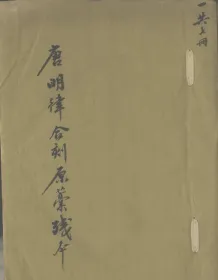 一共七册
唐明律合刻原藁残本